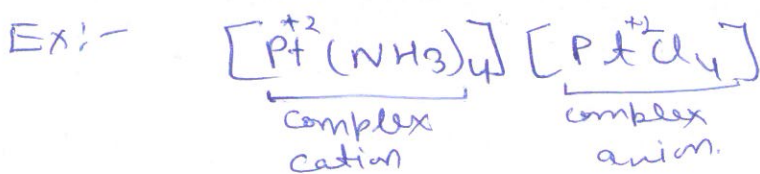 Ex:- [Pt+2(NH3)4] [Pt+2Cl4]
complex cation
complex anion.